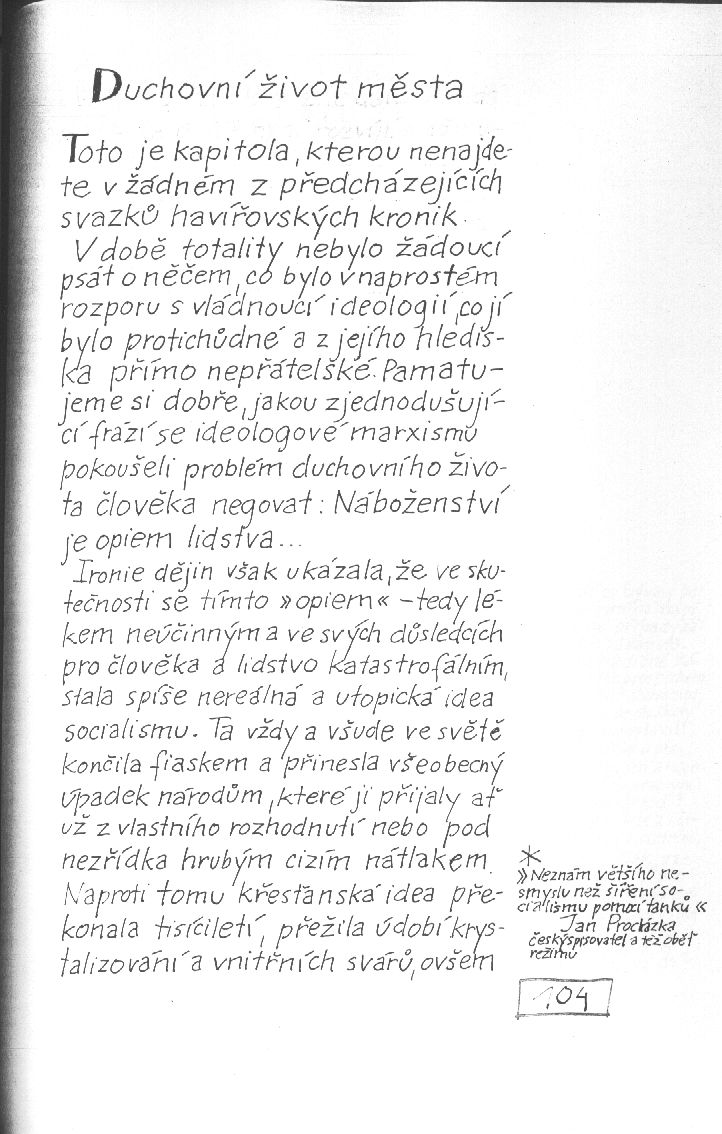 Duchovní život města
Toto je kapitola, kterou nenajde-
te v žádném z předcházejících
svazků havířovských kronik.
V době totality nebylo žádoucí
psát o něčem, co bylo v naprostém
rozporu s vládnoucí ideologií, co jí
bylo protichůdné a z jejího hledis-
ka přímo nepřátelské. Pamatu-
jeme si dobře, jakou zjednodušují-
cí frází se ideologové marxismu
pokoušeli problém duchovního živo-
ta člověka negovat: Náboženství
je opiem lidstva...
Ironie dějin však ukázala, že ve sku-
tečnosti se tímto »opiem« – tedy lé-
kem neúčinným a ve svých důsledcích
pro člověka a lidstvo katastrofálním,
stala spíše nereálná a utopická idea
socialismu. Ta vždy a všude ve světě
končila fiaskem a přinesla všeobecný
úpadek národům, které ji přijaly ať
už z vlastního rozhodnutí nebo pod
nezřídka hrubým cizím nátlakem.
Naproti tomu křesťanská idea pře-
konala tisíciletí, přežila údobí krys-
talizování a vnitřních svárů, ovšem
*
»Neznám většího ne-
smyslu než šíření so-
cialismu pomocí tanků«
Jan Procházka
český spisovatel a též oběť
režimu
104